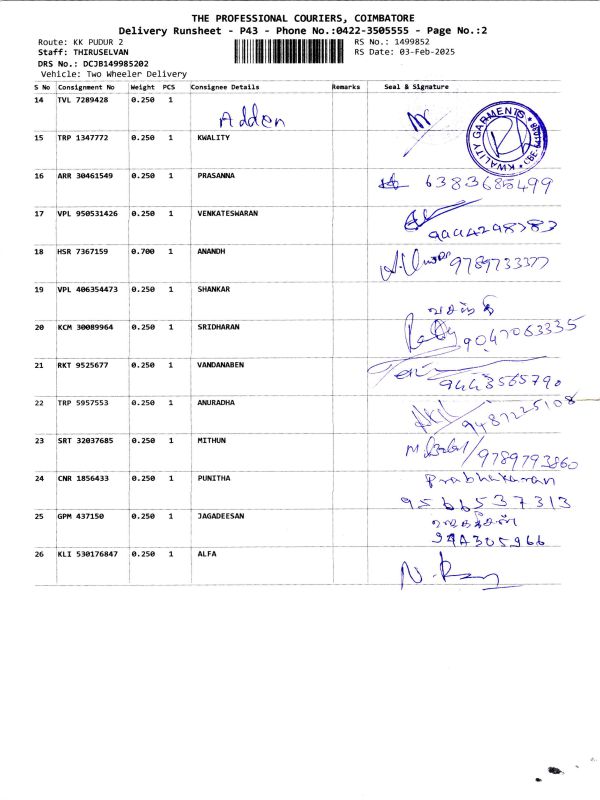 THE PROFESSIONAL COURIERS, COIMBATORE
Delivery Runsheet - P43 - Phone No.:0422-3505555 - Page No.:2
Route: KK PUDUR 2 RS No.: 1499852
Staff: THIRUSELVAN RS Date: 03-Feb-2025
DRS No.: DCJB149985202
Vehicle: Two Wheeler Delivery
S No Consignment No Weight PCS Consignee Details Remarks Seal & Signature
14 TVL 7289428 0.250 1 Adden
15 TRP 1347772 0.250 1 KWALITY KWALITY GARMENTS
16 ARR 30461549 0.250 1 PRASANNA 6383685499
17 VPL 950531426 0.250 1 VENKATESHWARAN 9444248783
18 HSR 7367159 0.700 1 ANANDH 9789733377
19 VPL 406354473 0.250 1 SHANKAR
20 KCM 30089964 0.250 1 SRIDHARAN 9047063335
21 RKT 9525677 0.250 1 VANDANABEN 9443565790
22 TRP 5957553 0.250 1 ANURADHA 9487225108
23 SRT 32037685 0.250 1 MITHUN 9789793860
24 CNR 1856433 0.250 1 PUNITHA Prabhakaran
9566537313
25 GPM 437150 0.250 1 JAGADEESAN
26 KLI 530176847 0.250 1 ALFA